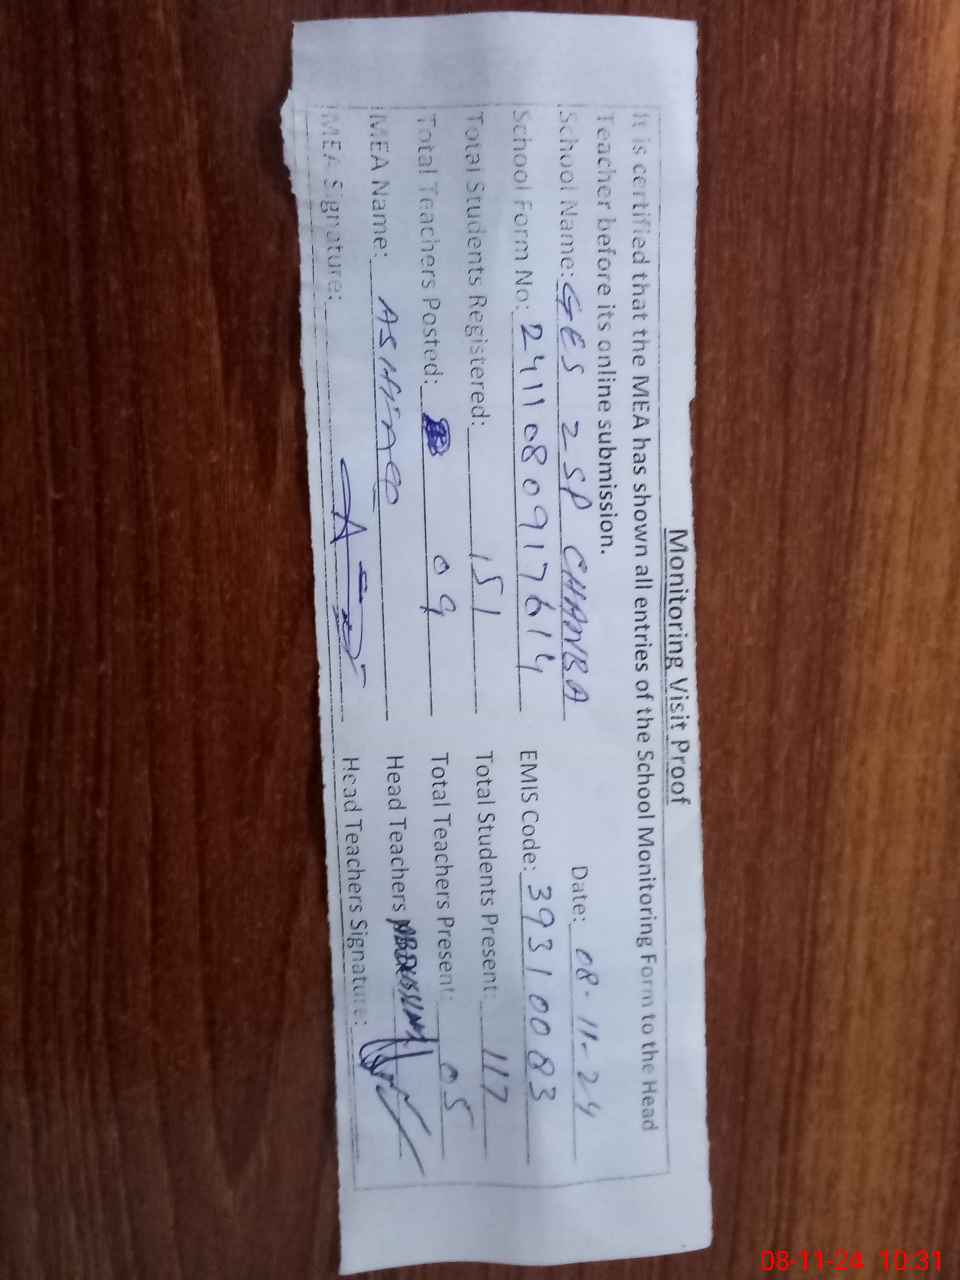 Monitoring Visit Proof
It is certified that the MEA has shown all entries of the School Monitoring Form to the Head
Teacher before its online submission. Date: 08-11-24
School Name: GES 2SP CHANBA
School Form No: 2411080917614 EMIS Code: 39310083
Total Students Registered: 151 Total Students Present: 117
Total Teachers Posted: 09 Total Teachers Present: 05
MEA Name: ASHFAQ Head Teachers
MEA Signature: Head Teachers Signature:
08-11-24 10:31